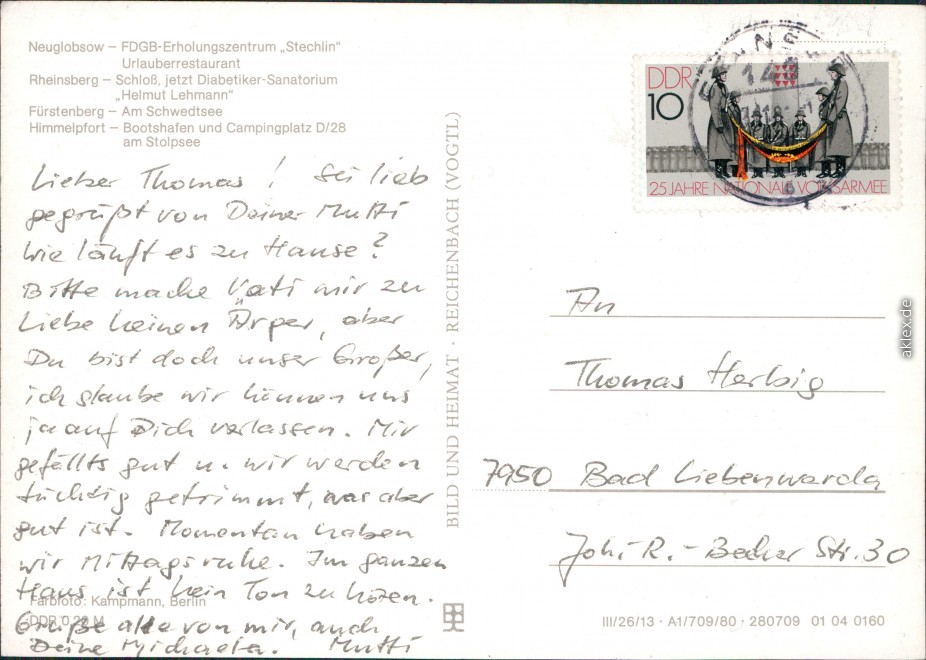 Neuglobsow – FDGB-Erholungszentrum „Stechlin“
Urlauberrestaurant
Rheinsberg – Schloß, jetzt Diabetiker-Sanatorium
„Helmut Lehmann“
Fürstenberg – Am Schwedtsee
Himmelpfort – Bootshafen und Campingplatz D/28
am Stolpsee
Lieber Thomas! Sei lieb
gegrüßt von Deiner Mutti
Wie läuft es zu Hause?
Bitte mache Vati mir zu
Liebe keinen Ärger, aber
Du bist doch unser Großer,
ich glaube wir können uns
ja auf Dich verlassen. Mir
gefällts gut u. wir werden
tüchtig getrimmt, was aber
gut ist. Momentan haben
wir Mittagsruhe. Im ganzen
Haus ist kein Ton zu hören.
Farbfoto: Kampmann, Berlin
Grüße alle von mir, auch
DDR 0,20 M
Deine Michaela. Mutti
BILD UND HEIMAT · REICHENBACH (VOGTL)
DDR
10
25 JAHRE NATIONALE VOLKSARMEE
An
Thomas Herbig
7950 Bad Liebenwerda
Joh.-R.-Becher Str. 30
III/26/13 · A1/709/80 · 280709 01 04 0160
aklex.de